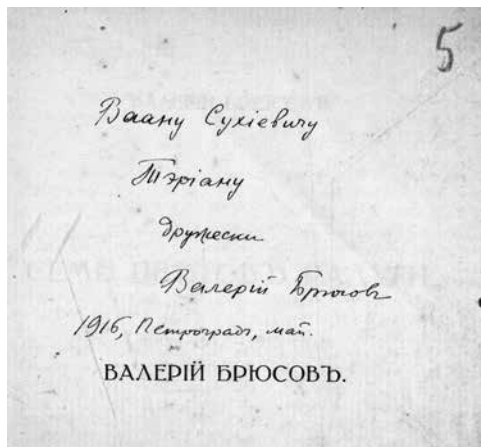 5
Ваану Сухіевичу
Тэріану
дружески
Валерій Брюсовъ
1916, Петроградъ, май.
ВАЛЕРІЙ БРЮСОВЪ.